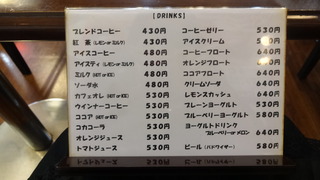 [DRINKS]
ブレンドコーヒー 430円
紅茶 (レモン or ミルク) 430円
アイスコーヒー 480円
アイスティ (レモン or ミルク) 480円
ミルク (HOT or ICE) 480円
ソーダ水 480円
カフェオレ (HOT or ICE) 530円
ウインナーコーヒー 530円
ココア (HOT or ICE) 530円
コカコーラ 530円
オレンジジュース 530円
トマトジュース 530円
コーヒーゼリー 530円
アイスクリーム 580円
コーヒーフロート 640円
オレンジフロート 640円
ココアフロート 640円
クリームソーダ 640円
レモンスカッシュ 640円
プレーンヨーグルト 530円
ブルーベリーヨーグルト 580円
ヨーグルトドリンク
ブルーベリー or メロン 640円
ビール (バドワイザー) 580円